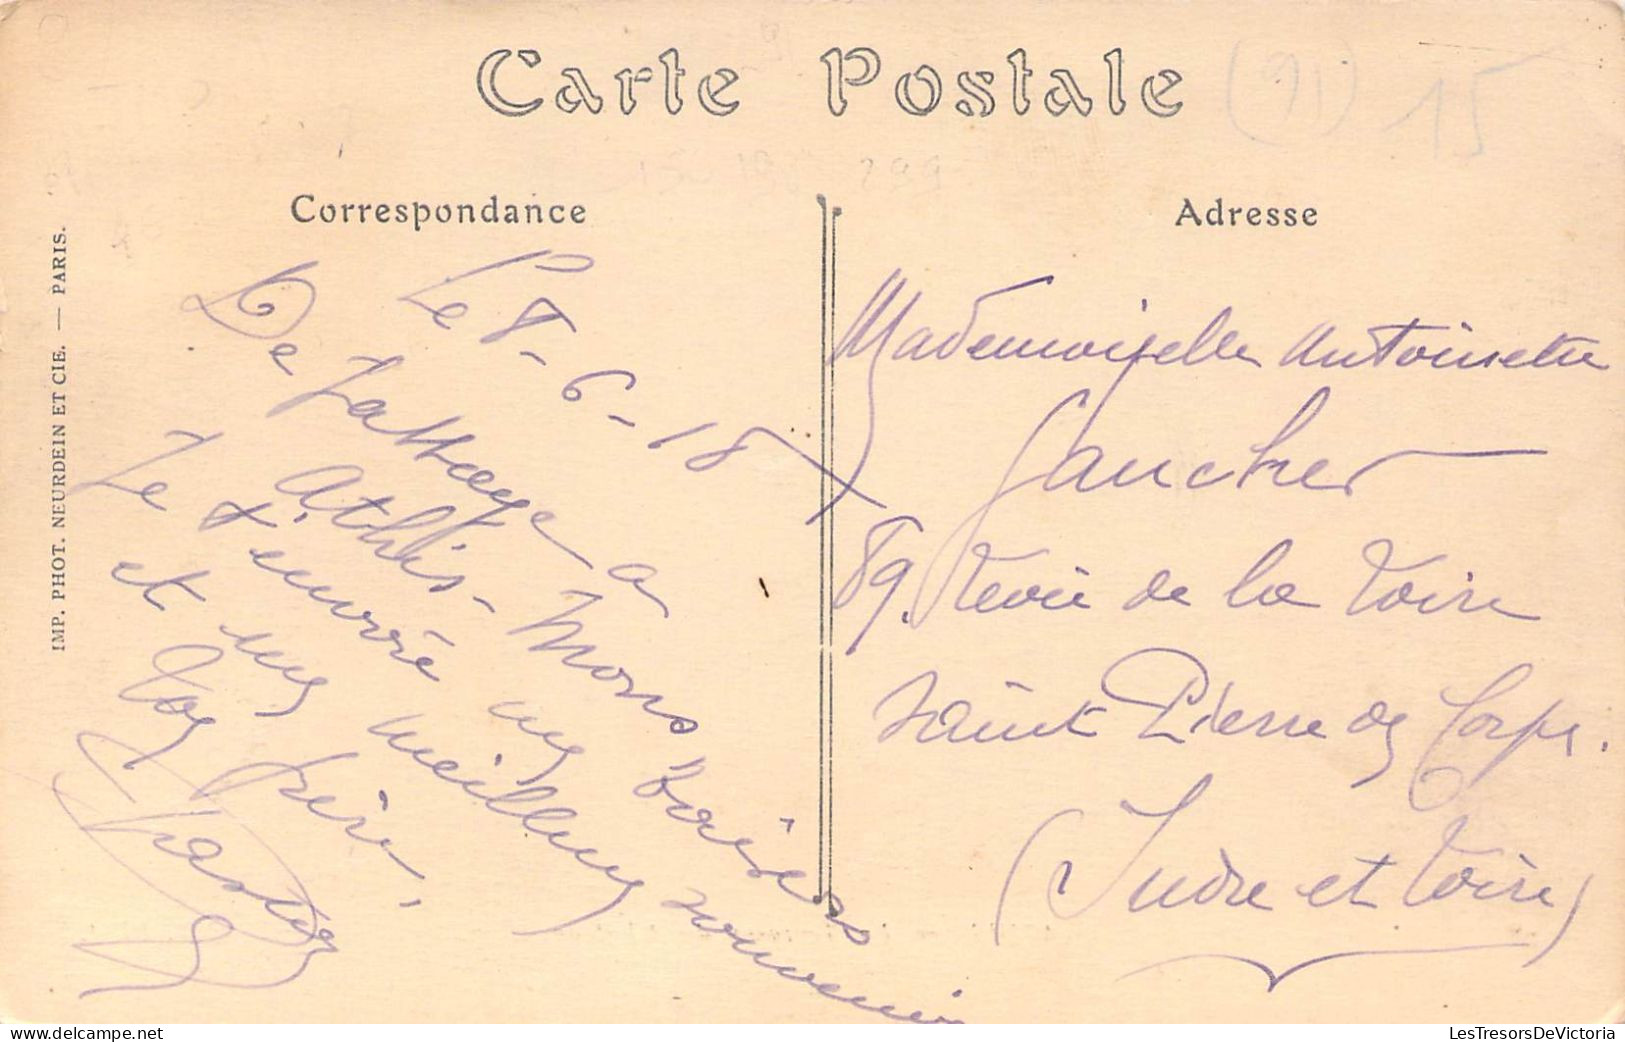 Carte Postale
(91) 15
299
Correspondance
Adresse
IMP. PHOT. NEURDEIN ET CIE. — PARIS.
Le 8-6-18
De passage a
Athis-Mons
Je t'envoie mes baisers
et mes meilleurs souvenirs
Ton frère,
Mademoiselle Antoinette
Gaucher
89. Levée de la Loire
Saint Pierre des Corps.
(Indre et Loire)
LesTresorsDeVictoria
www.delcampe.net